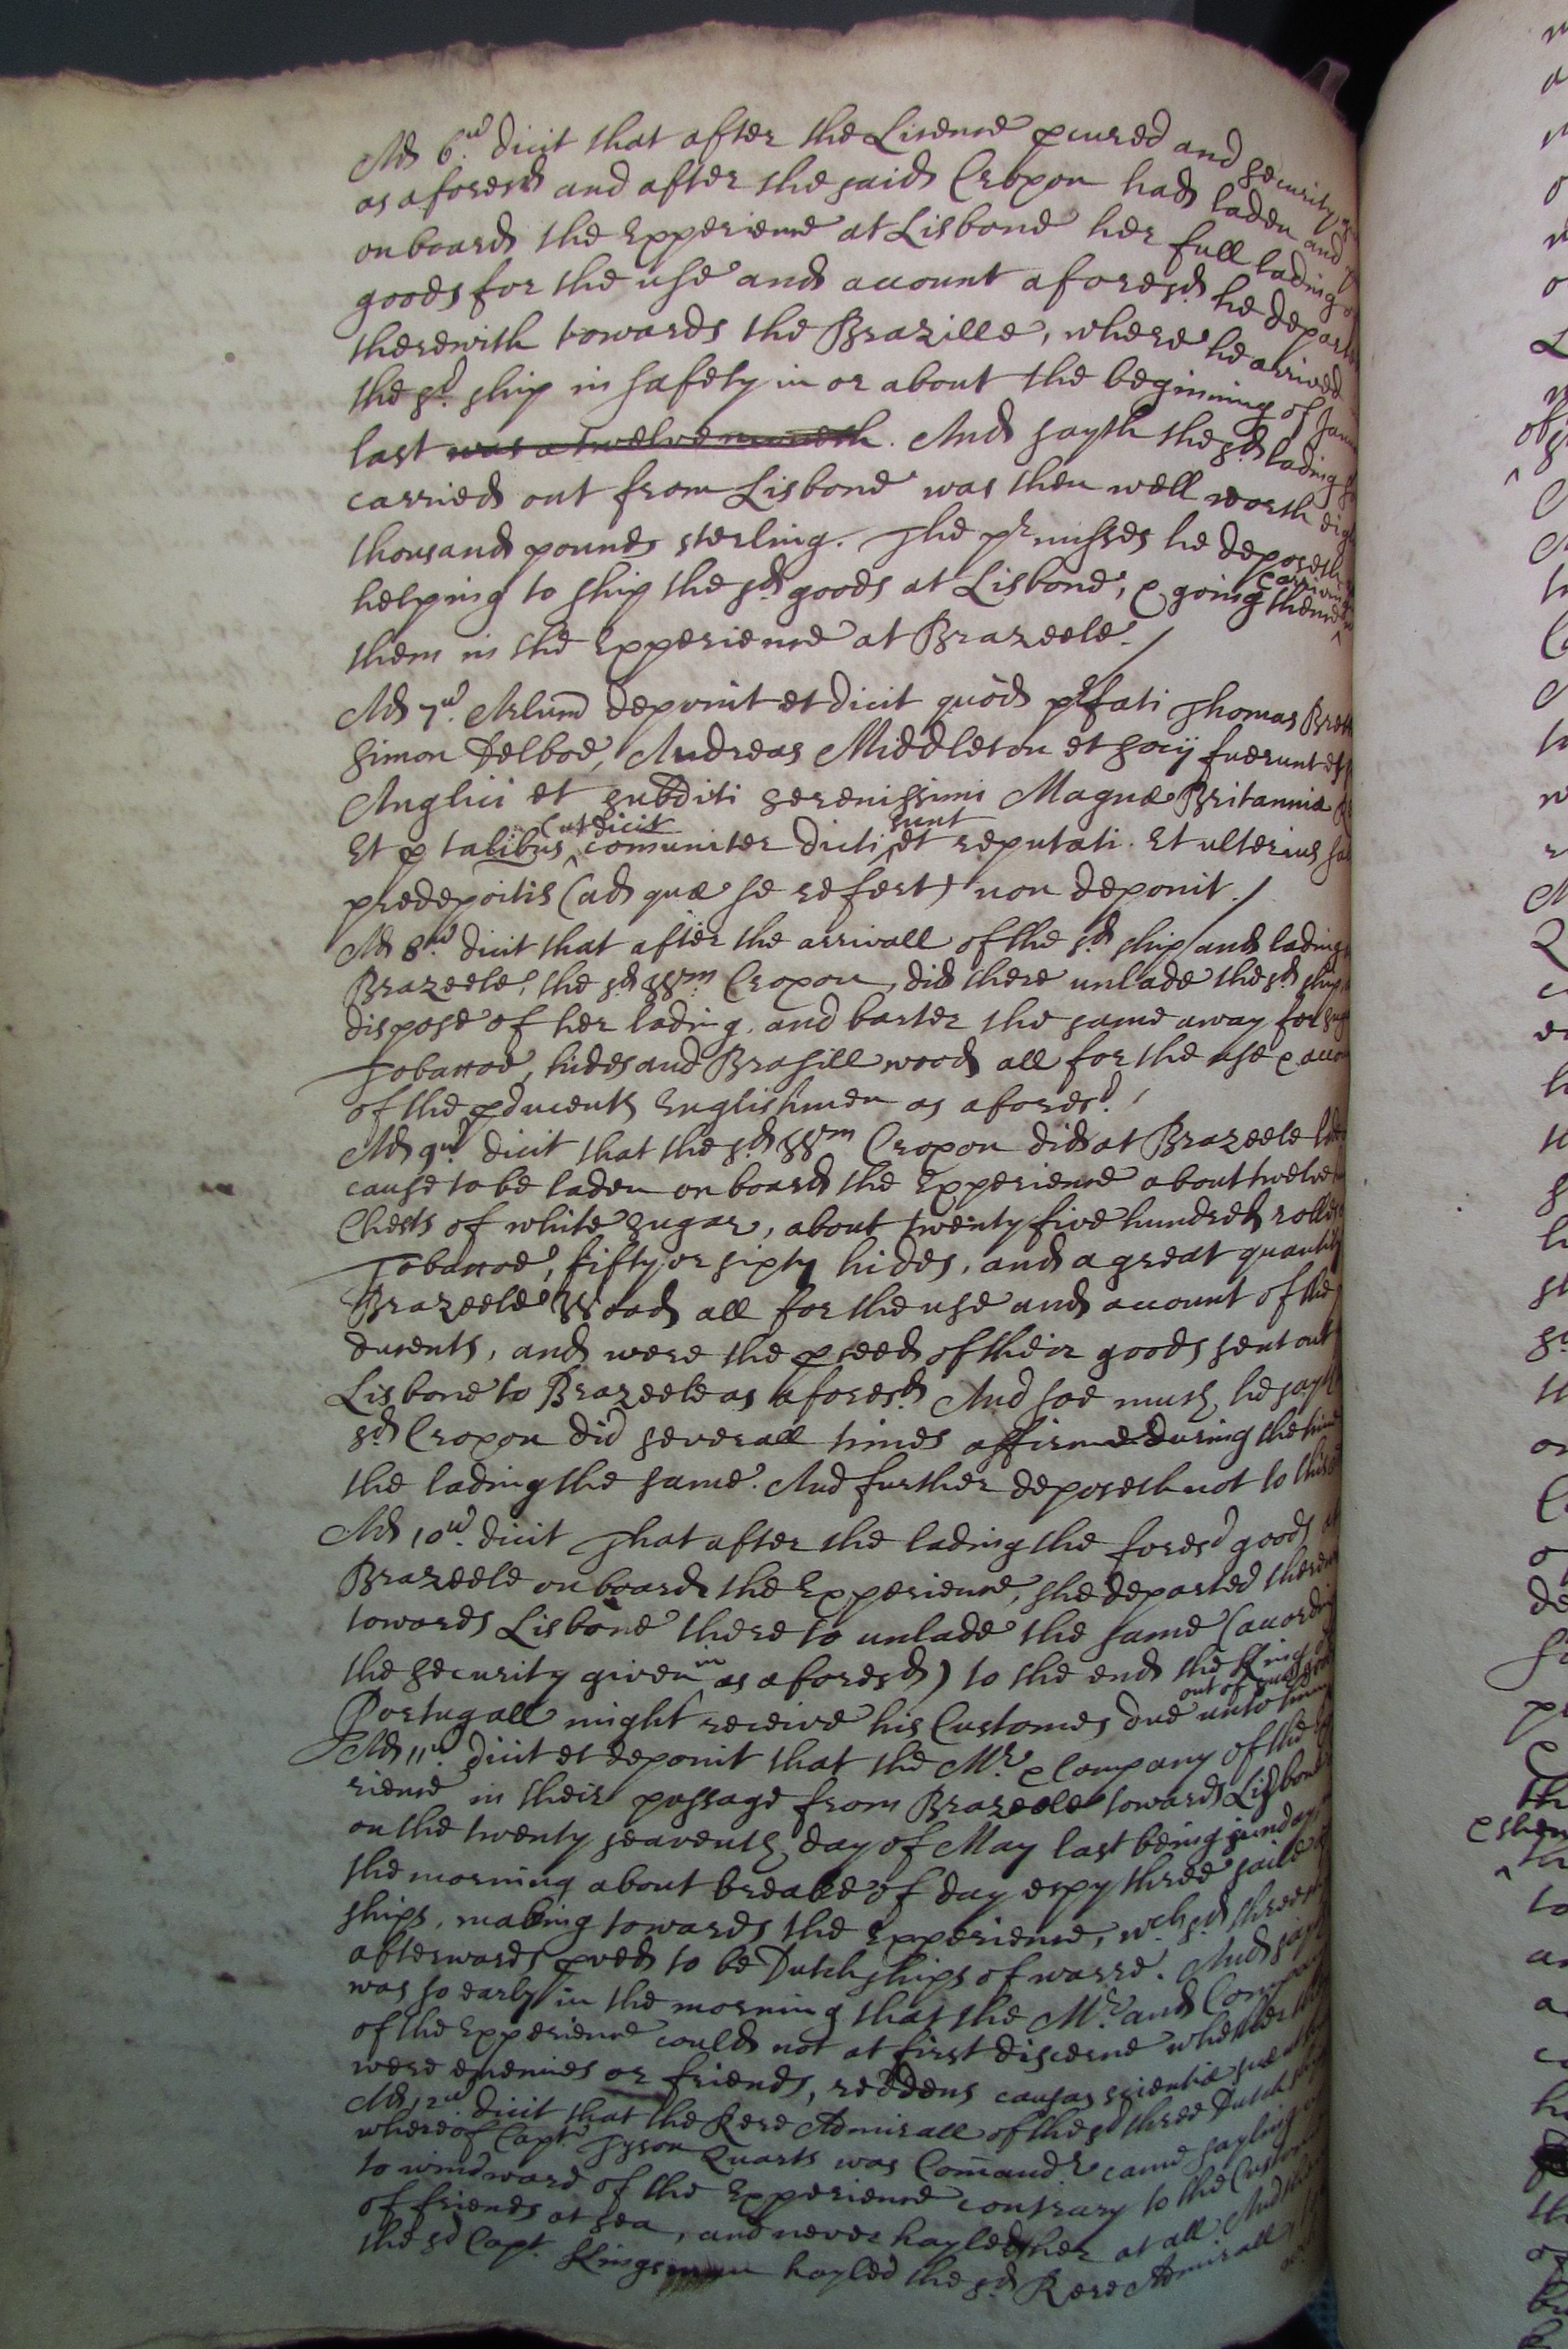 Ad 6.um dicit that after the Licence pcured and security
as aforesd and after the said Croxon had laden and
on board the Experience at Lisbone her full lading
goods for the use and account aforesd. he depart
therewith towards the Brazille, where he arrived
the sd. ship in safety in or about the beginning of
last was a twelve moneth. And sayth the sd. lading
carried out from Lisbone was then well worth
thousand pounds sterling. The prmisses he deposeth
helping to ship the sd. goods at Lisbone, & going thence
them in the Experience at Brazeele./
Ad 7.um Arlum deponit et dicit quòd prfati Thomas
Simon Delboe, Andreas Middleton et socij fuerunt
Anglici et subditi serenissimi Magnæ Britanniæ
Et p talibus (ut dicit comuniter dicti sunt et reputati. Et ulterius
predepoitis (ad quæ se refert) non deponit./
Ad 8.um dicit that after the arrivall of the sd. ship and lading
Brazeele, the sd. Wm. Croxon, did there unlade the sd. ship
dispose of her lading, and barter the same away for
Tobaccoe, hides and Brasill wood all for the use &
of the pducents Englishmen as aforesd./
Ad 9um. dicit that the sd. Wm Croxon did at Brazeele
cause to be laden on board the Experience about twelve
Chests of white sugar, about twenty five hundred rolls
Tobaccoe, fifty or sixty hides, and a great quantity
Brazeele Wood all for the use and account of the
ducents, and were the pceed of their goods sent out
Lisbone to Brazeele as aforesd. And soe much he sayth
sd. Croxon did severall times affirme during the time
the lading the same. And further deposeth not to
Ad 10um. dicit That after the lading the foresd goods
Brazeele on board the Experience, she departed
towards Lisbone there to unlade the same (according
the security given in as aforesd) to the end the King
Portugall might receive his Customes due unto him
out of
Ad 11um. dicit et deponit that the Mr. & Company of the
rience in their passage from Brazeele towards Lisbone
on the twenty seaventh day of May last being sunday
the morning about breake of day espy three saile
ships, making towards the Experience, wch. sd. three
afterwards pved to be Dutch ships of warre. And
was so early in the morning that the Mr. and Company
of the Experience could not at first discerne whether
were enemies or friends, reddens causas scientiæ suæ
Ad 12um dicit that the Rere Admirall of the sd three Dutch
whereof Capt. Tyson Quarts was Comandr. came sayling
to windward of the Experience contrary to the Custome
of friends at sea, and never hayled her at all. And
the sd Capt. Kingsman hayled the sd. Rere Admirall